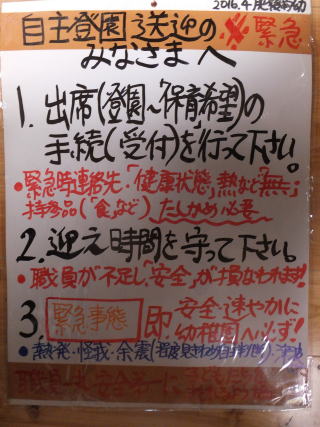 2016.4
自主登園 送迎の ※緊急
みなさまへ
1. 出席(登園~保育希望)の
手続(受付)を行って下さい。
●緊急時連絡先・「健康状態」熱など「無」
持参品(「食」など) たしかめ必要
2. 迎え時間を守って下さい。
●職員が不足し、「安全」が損なわれます!
3. 緊急事態 即 安全・速やかに
幼稚園へ必ず!
●熱発・怪我・余震
職員